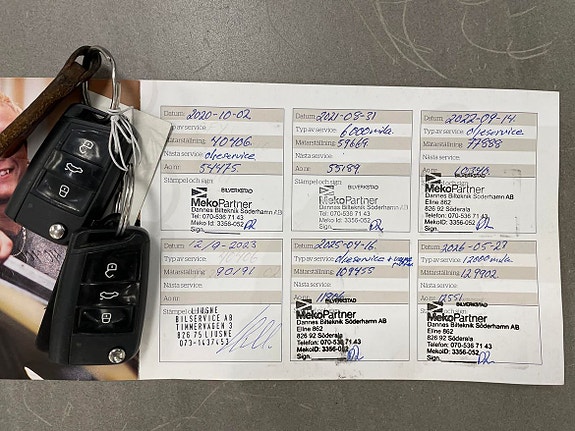 Datum: 2020-10-02
Typ av service:
Mätarställning: 40406
Nästa service: oljeservice
Ao nr: 54475
Stämpel och sign:
BILVERKSTAD
MekoPartner
Dannes Bilteknik Söderhamn AB
Tel: 070-536 71 43
Meko Id: 3356-052
Sign.
Datum: 2021-08-31
Typ av service: 6000 mila.
Mätarställning: 59669
Nästa service:
Ao nr: 55189
Stämpel och sign:
BILVERKSTAD
MekoPartner
Dannes Bilteknik Söderhamn AB
Tel: 070-536 71 43
Meko Id: 3356-052
Sign.
Datum: 2022-09-14
Typ av service: oljeservice
Mätarställning: 77888
Nästa service:
Ao nr:
BILVERKSTAD
MekoPartner
Dannes Bilteknik Söderhamn AB
Eline 862
826 92 Söderala
Telefon: 070-536 71 43
MekoID: 3356-052
Sign.
Datum: 12/9-2023
Typ av service:
Mätarställning: 90191
Nästa service:
Ao nr:
Stämpel och
LJUSNE
BILSERVICE AB
TIMMERVÄGEN 3
82675 LJUSNE
073-1437453
Datum: 2025-04-16
Typ av service: oljeservice +
Mätarställning: 109455
Nästa service:
Ao nr:
BILVERKSTAD
MekoPartner
Dannes Bilteknik Söderhamn AB
Eline 862
826 92 Söderala
Telefon: 070-536 71 43
MekoID: 3356-052
Sign.
Datum: 2026-05-27
Typ av service: 12000 mila.
Mätarställning: 129902
Nästa service:
Ao nr: 12551
BILVERKSTAD
MekoPartner
Dannes Bilteknik Söderhamn AB
Eline 862
826 92 Söderala
Telefon: 070-536 71 43
MekoID: 3356-052
Sign.